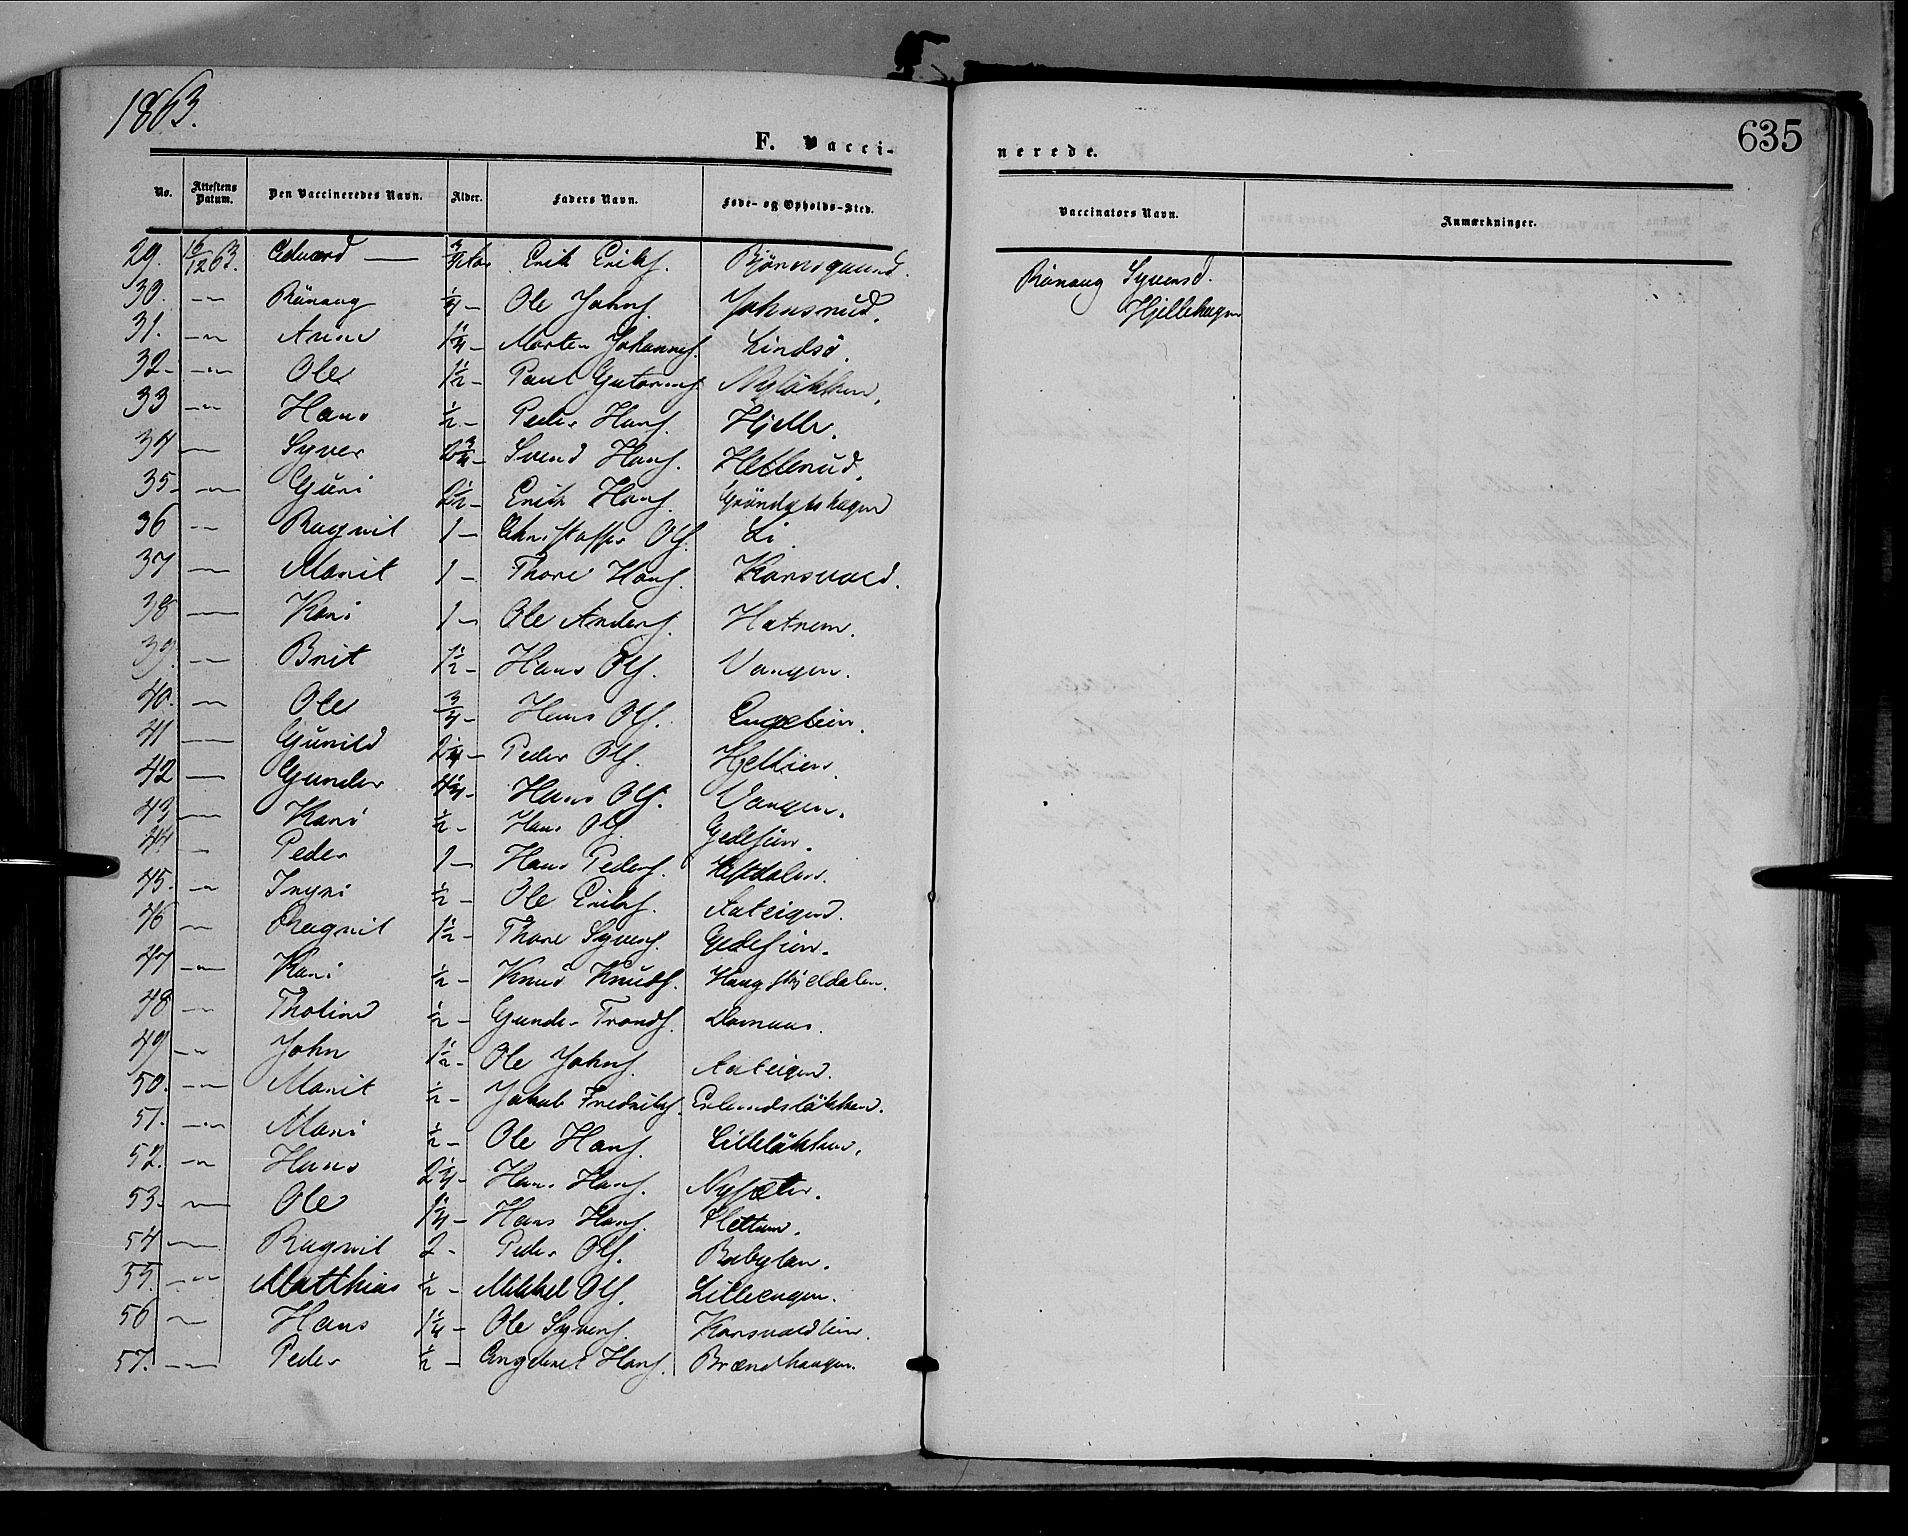 1863.
635
F. Vacci-
nerede.
No. Attestens Datum. Den Vaccineredes Navn. Alder. Faders Navn. Føde- og Opholds-Sted.
Vaccinators Navn. Anmærkninger.
29. 16/12 63. Edvard — 3/4 Erik Eriks.
Rönaug Syversd.
Hjellehagen
30. -"- Rönaug 1/4 - Ole Johns. Johnsrud.
31. -"- Anne 1 1/4 - Morten Johannes. Lindsö.
32. -"- Ole 1 1/2 - Paul Nylökken.
33 -"- Hans 1/2 - Peder Hans. Hjelle.
34 — Syver 2 3/4 - Svend Hans.
35. — Guri 2 1/2 - Erik Hans.
36 -"- Ragnil 1 - Christoffer Ols. Li.
37 — Marit 1 - Thore Hans. Korsvold.
38 — Kari 1 - Ole Anders. Hatrem.
39. -"- Brit 1 1/2 - Hans Ols. Vangen.
40. -"- Ole 3/4 - Hans Ols. Engelien.
41 — Gunild 2 1/4 - Peder Ols.
42 — Gunder 4 1/4 - Hans Ols. Vangen.
43 — Kari 1/2 - Hans Ols.
44 - Peder 1 - Hans Peders.
45. -"- Ingri 1/2 - Ole Eriks. Aateigen.
46 -"- Ragnil 1 1/2 - Thore Syvers.
47 -"- Kari 1/2 - Knud Knuds. Haugskjeldalen.
48 -"- Tholine 1/2 - Gunder Tronds. Domaas.
49 -"- John 1 1/2 - Ole Johns. Aateigen.
50. -"- Marit 1/2 - Jakob Fredriks. Enlundslökken.
51. -"- Mari 1/2 - Ole Hans. Lillelökken.
52. -"- Hans 2 1/4 - Hans Hans. Nysæter.
53. -"- Ole 1 1/4 - Hans Hans. Slettum.
54 — Ragnil 2 - Peder Ols. Babylon.
55. -"- Matthias 1/2 - Mikkel Ols. Lilleengen.
56 -"- Hans 1 1/4 - Ole Syvers. Korsvoldlien.
57. -"- Peder 1/2 - Engebret Hans. Brændhaugen.